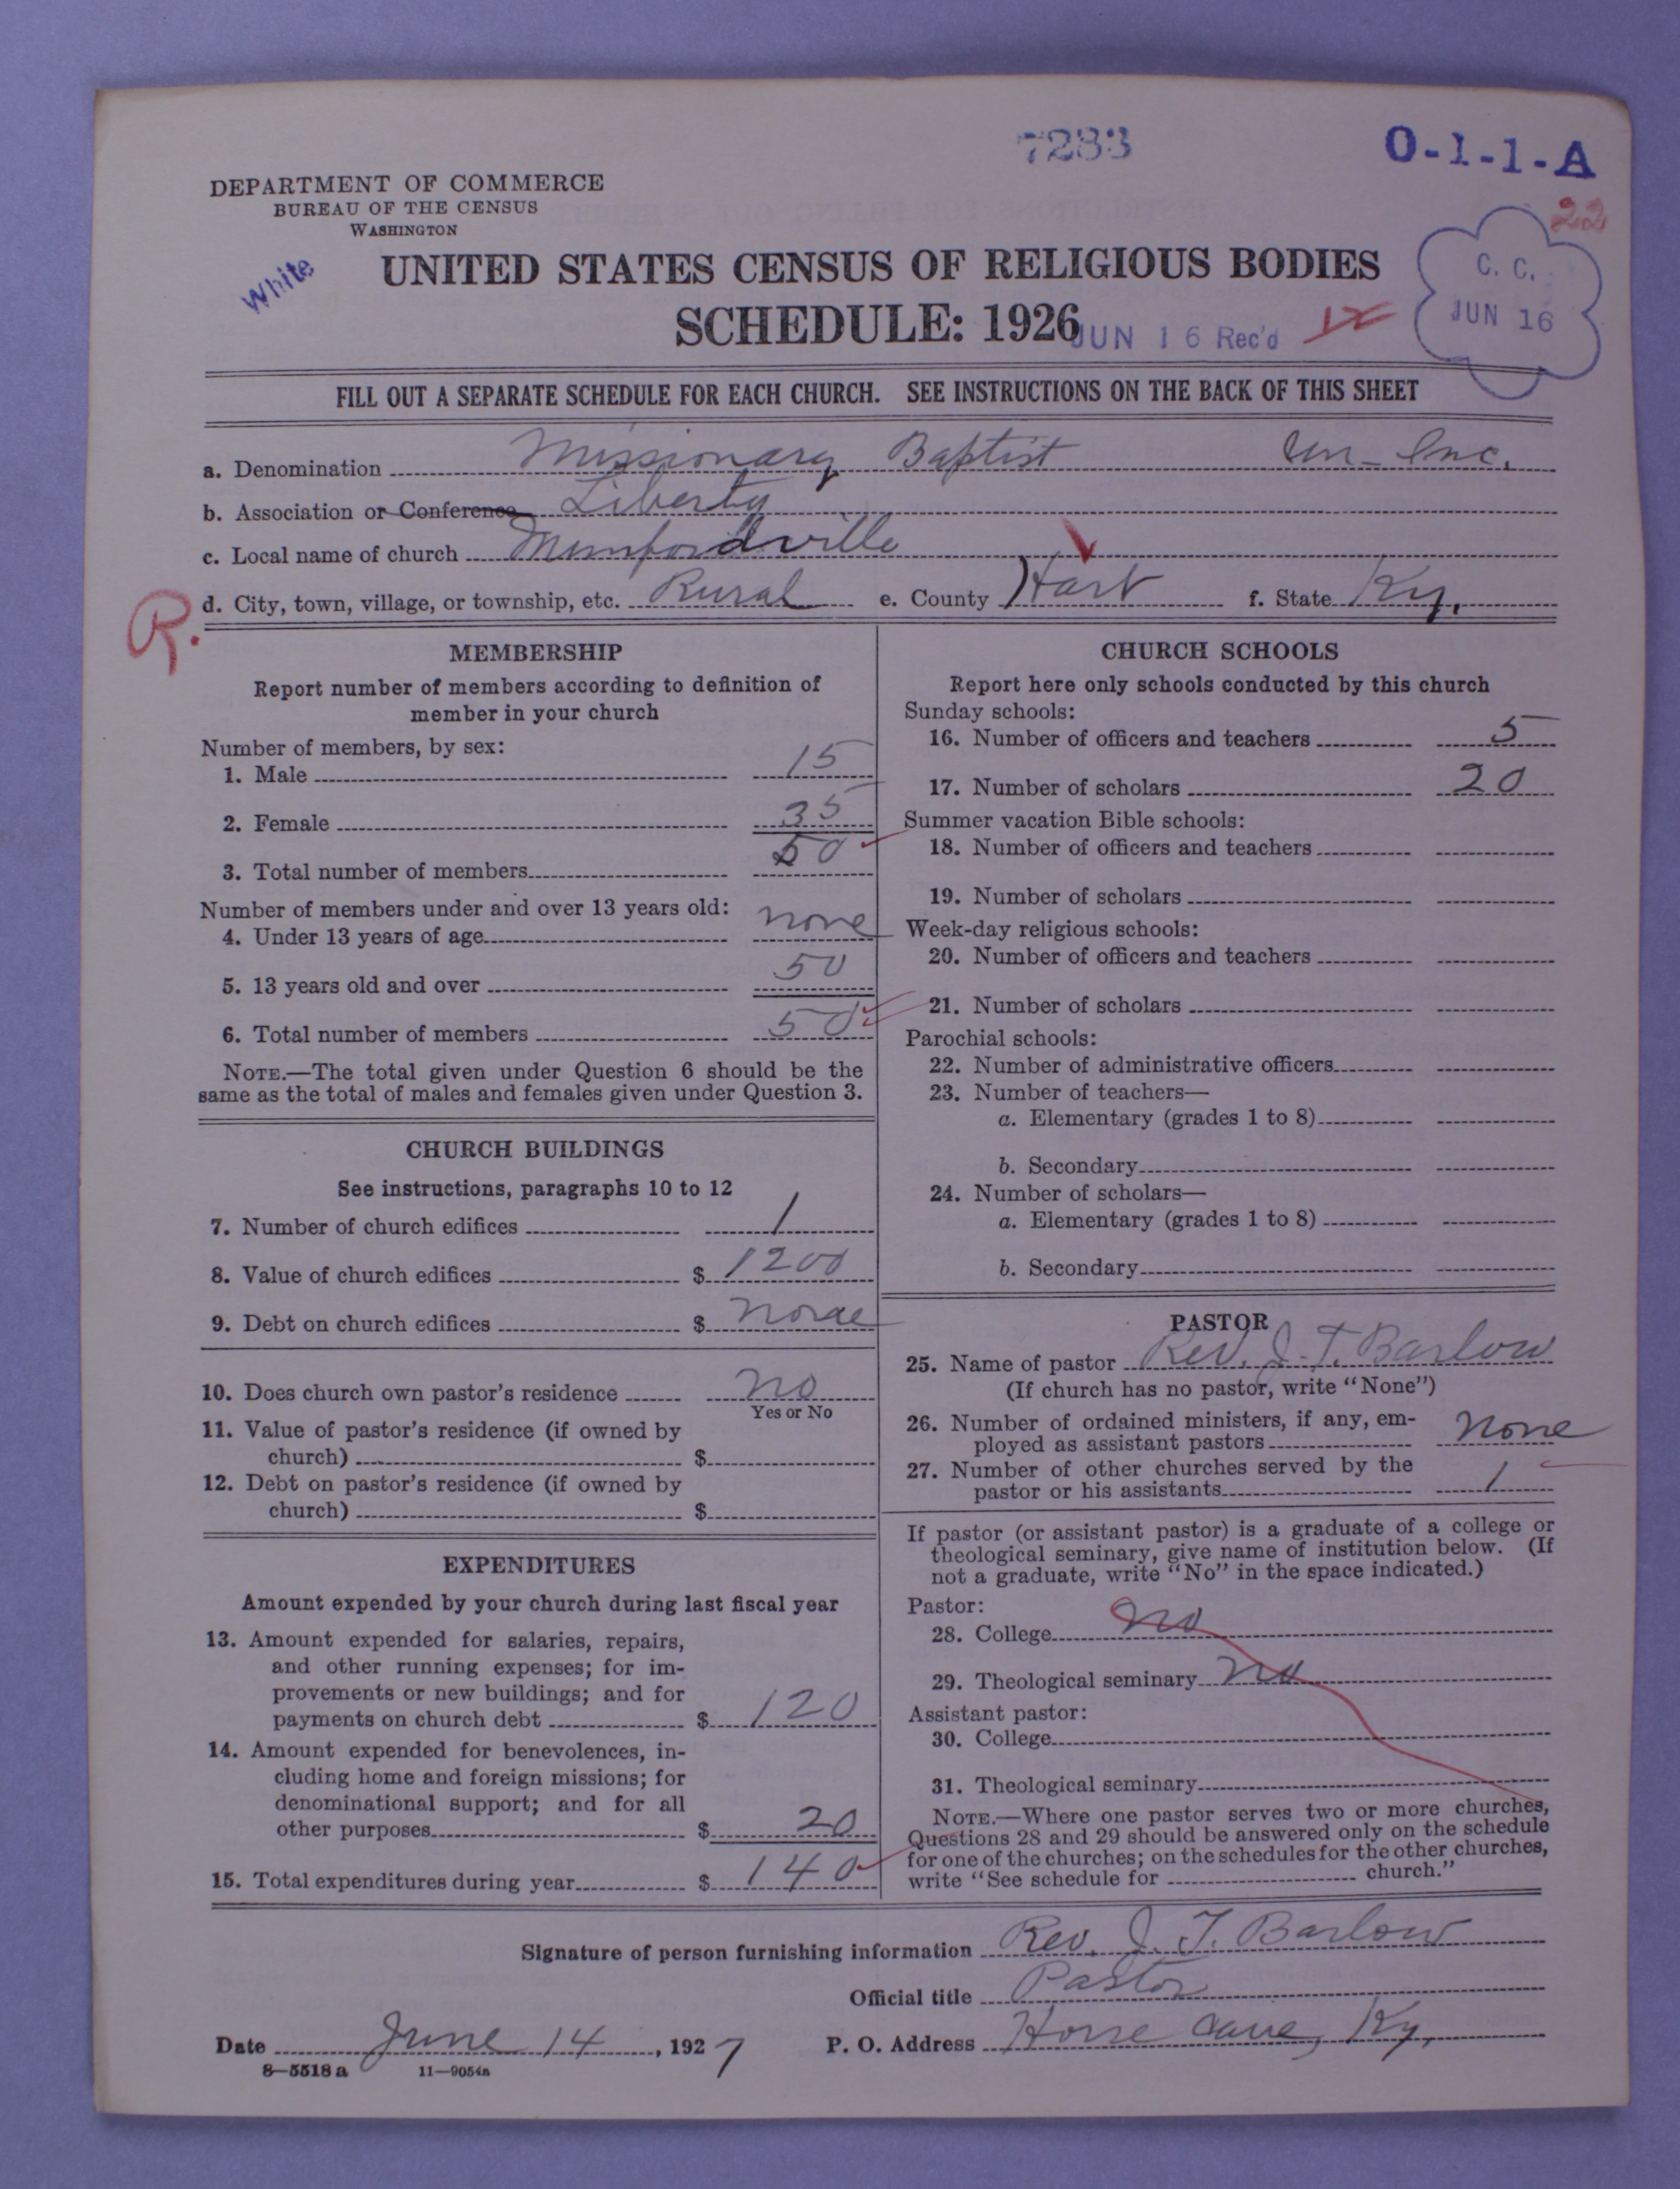 7283
O-1-1-A
22
DEPARTMENT OF COMMERCE
BUREAU OF THE CENSUS
WASHINGTON
White
UNITED STATES CENSUS OF RELIGIOUS BODIES
SCHEDULE: 1926
JUN 16 Rec'd
C. C.
JUN 16
FILL OUT A SEPARATE SCHEDULE FOR EACH CHURCH. SEE INSTRUCTIONS ON THE BACK OF THIS SHEET
a. Denomination Missionary Baptist Un-Inc.
b. Association or Conference Liberty
c. Local name of church Munfordville
R.
d. City, town, village, or township, etc. Rural e. County Hart f. State Ky.
MEMBERSHIP
Report number of members according to definition of
member in your church
Number of members, by sex:
1. Male 15
2. Female 35
3. Total number of members 50
Number of members under and over 13 years old:
4. Under 13 years of age none
5. 13 years old and over 50
6. Total number of members 50
NOTE.—The total given under Question 6 should be the
same as the total of males and females given under Question 3.
CHURCH BUILDINGS
See instructions, paragraphs 10 to 12
7. Number of church edifices 1
8. Value of church edifices $ 1200
9. Debt on church edifices $ none
10. Does church own pastor's residence no
Yes or No
11. Value of pastor's residence (if owned by
church) $
12. Debt on pastor's residence (if owned by
church) $
EXPENDITURES
Amount expended by your church during last fiscal year
13. Amount expended for salaries, repairs,
and other running expenses; for im-
provements or new buildings; and for
payments on church debt $ 120
14. Amount expended for benevolences, in-
cluding home and foreign missions; for
denominational support; and for all
other purposes $ 20
15. Total expenditures during year $ 140
CHURCH SCHOOLS
Report here only schools conducted by this church
Sunday schools:
16. Number of officers and teachers 5
17. Number of scholars 20
Summer vacation Bible schools:
18. Number of officers and teachers
19. Number of scholars
Week-day religious schools:
20. Number of officers and teachers
21. Number of scholars
Parochial schools:
22. Number of administrative officers
23. Number of teachers—
a. Elementary (grades 1 to 8)
b. Secondary
24. Number of scholars—
a. Elementary (grades 1 to 8)
b. Secondary
PASTOR
25. Name of pastor Rev. J. T. Barlow
(If church has no pastor, write "None")
26. Number of ordained ministers, if any, em-
ployed as assistant pastors none
27. Number of other churches served by the
pastor or his assistants 1
If pastor (or assistant pastor) is a graduate of a college or
theological seminary, give name of institution below. (If
not a graduate, write "No" in the space indicated.)
Pastor:
28. College no
29. Theological seminary no
Assistant pastor:
30. College
31. Theological seminary
NOTE.—Where one pastor serves two or more churches,
Questions 28 and 29 should be answered only on the schedule
for one of the churches; on the schedules for the other churches,
write "See schedule for church."
Signature of person furnishing information Rev. J. T. Barlow
Official title Pastor
Date June 14, 1927 P. O. Address Horse Cave, Ky.
8—5518 a 11—9054a